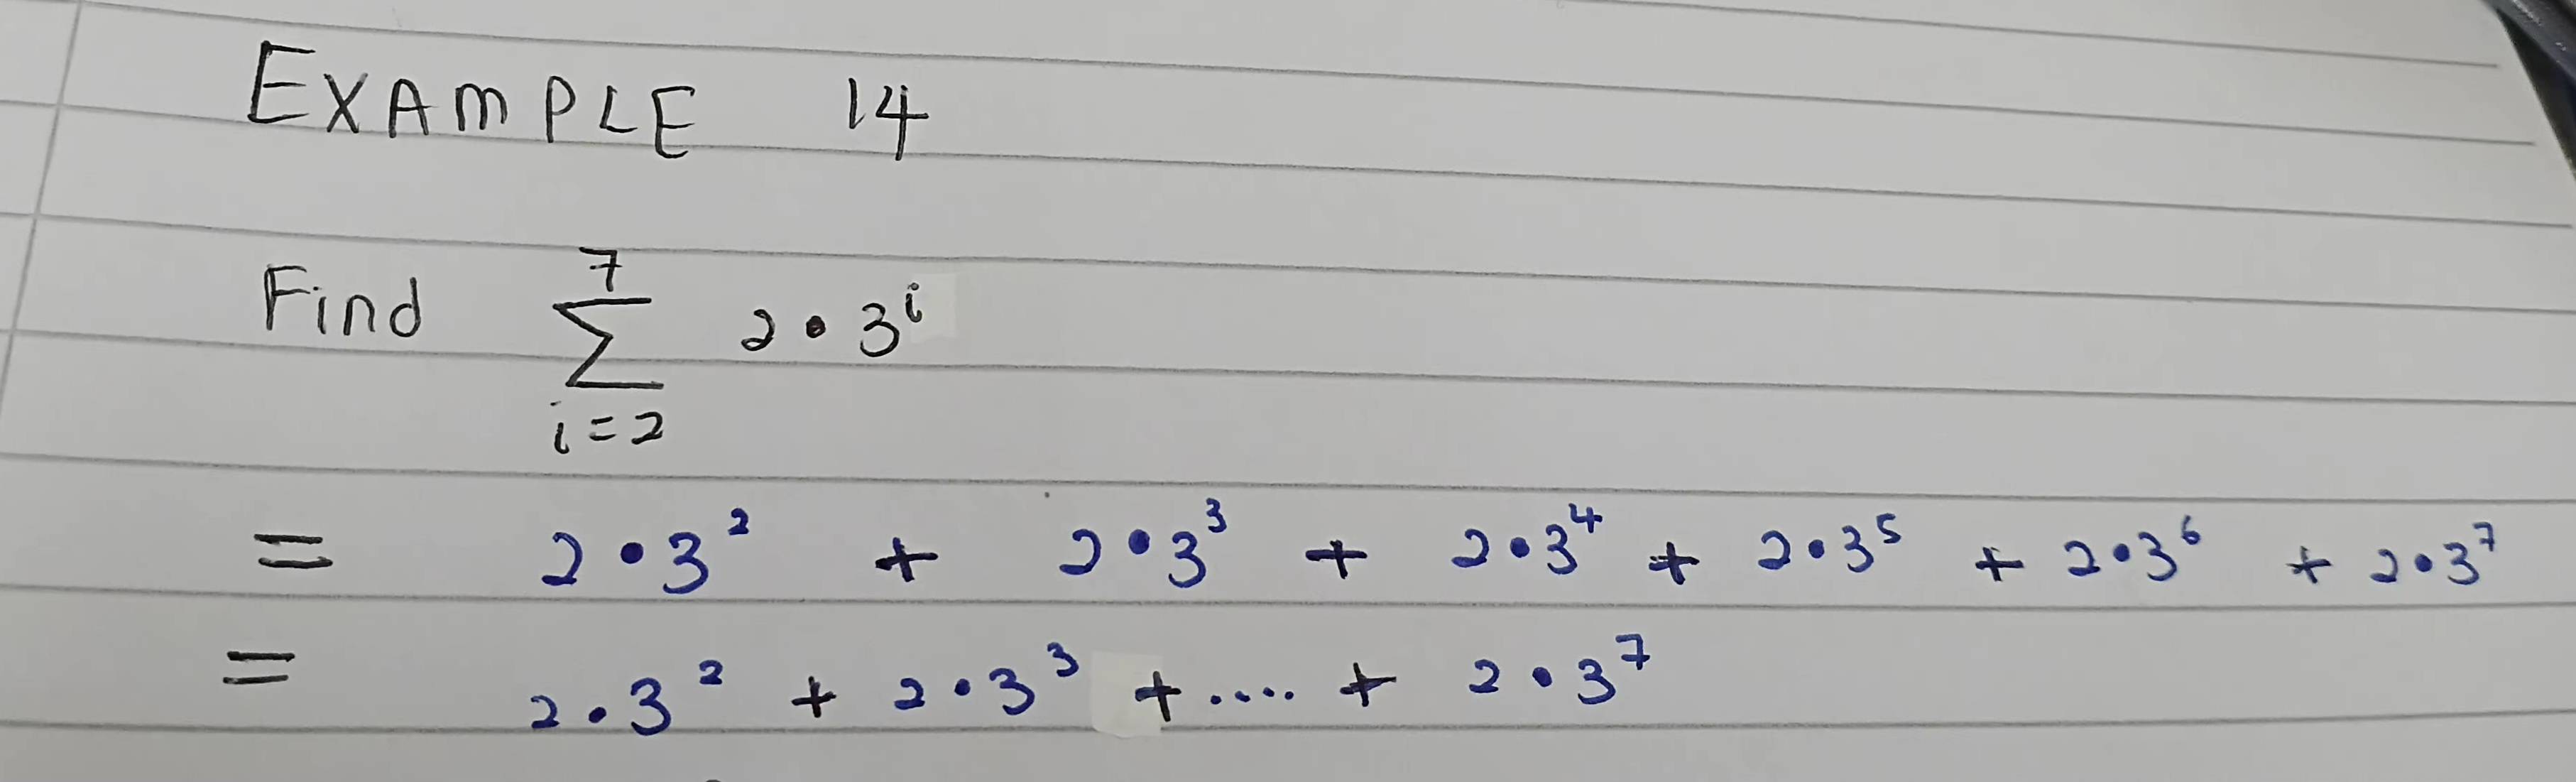 EXAMPLE 14
Find $\sum_{i=2}^{7} 2 \bullet 3^{i}$
= 2•3² + 2•3³ + 2•3⁴ + 2•3⁵ + 2•3⁶ + 2•3⁷
= 2•3² + 2•3³ + .... + 2•3⁷